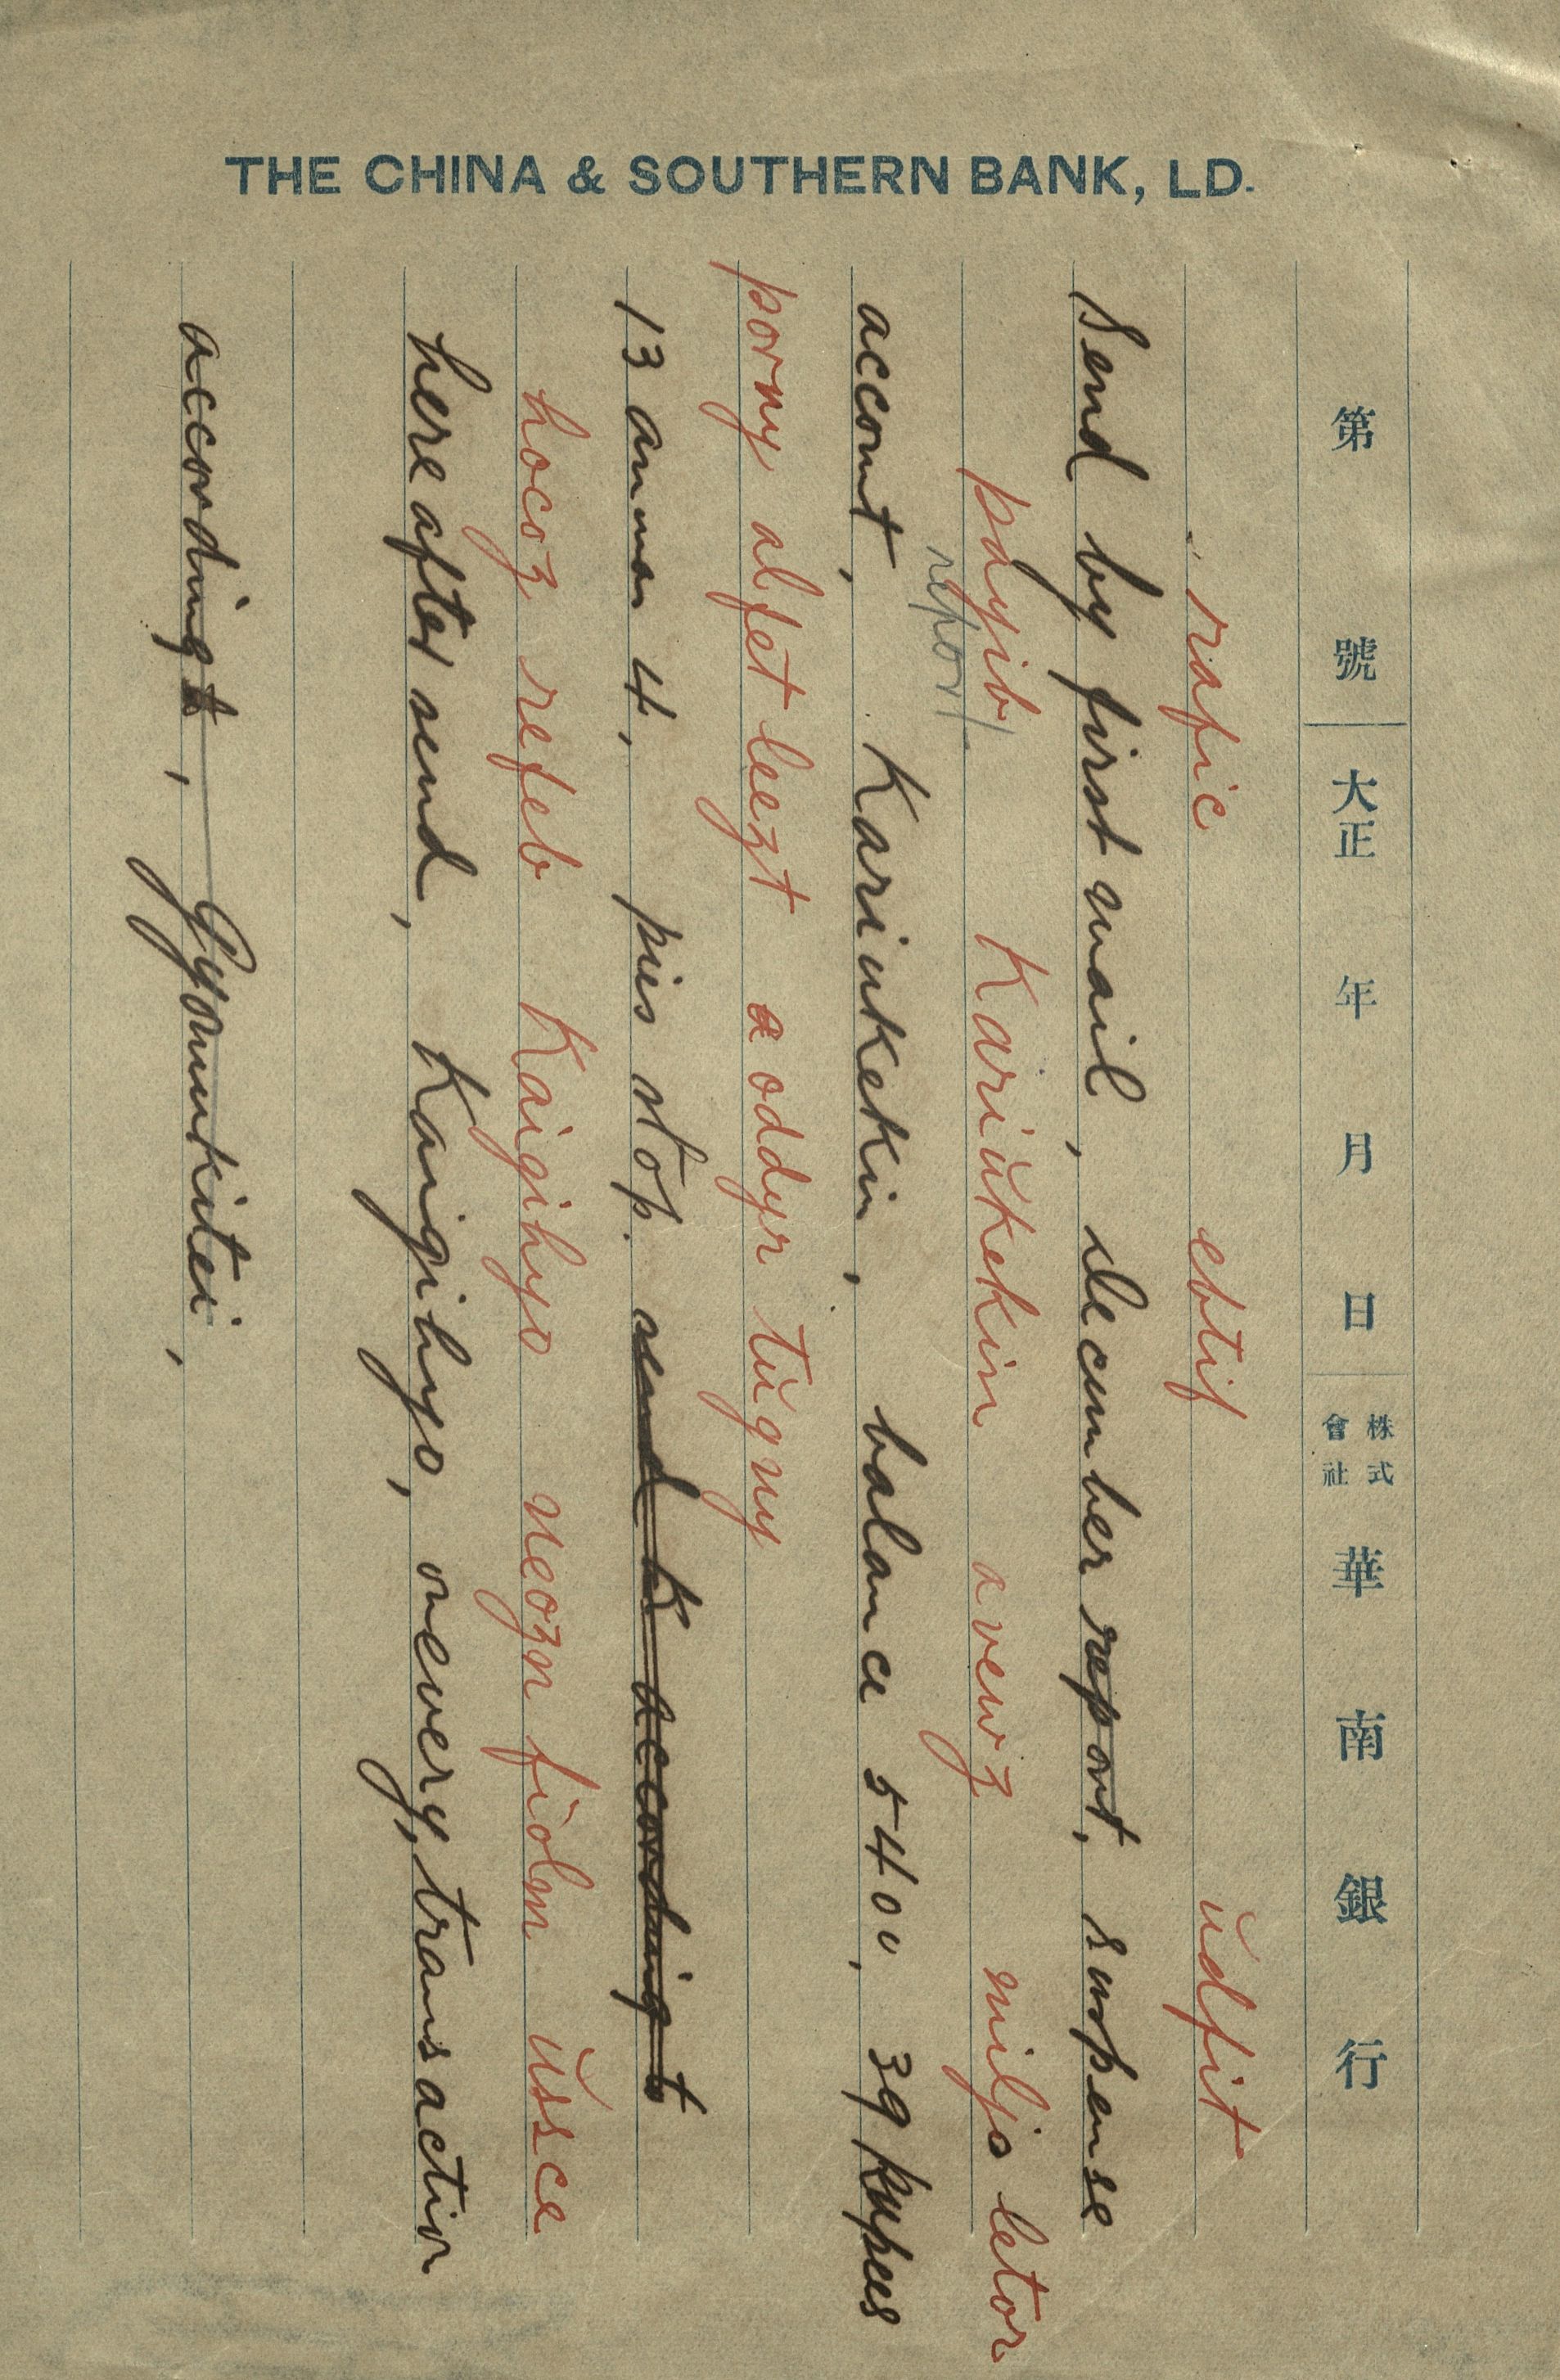 THE CHINA & SOUTHERN BANK, LD.
第 號 大正 年 月 日 株式會社 華南銀行
rafic ebtif udfit
Send by first mail, december report, suspense
pdyib Kariukekin avewz miljo letor
report
account, Kariukekin, balance 5400, 39 Rupees
porny alfet leezt aoddyr tugny
13 annas 4, pies stop. send K according t
hocoz refeb Kaigihyo neozn fiolm ussce
hereafter send, Kaigihyo, onevery, transaction
accordingt, Gyomukitei,